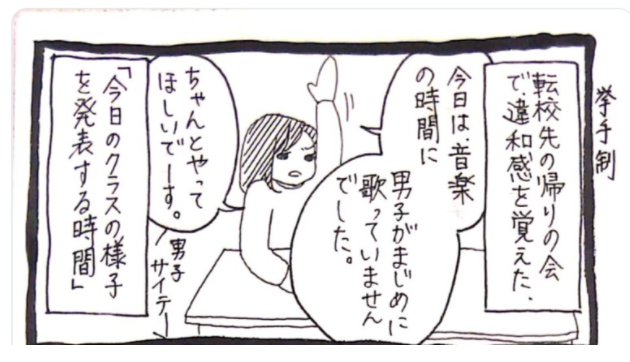 挙手制
転校先の帰りの会
で、違和感を覚えた、
今日は、音楽
の時間に
男子がまじめに
歌っていません
でした。
ちゃんとやって
ほしいでーす。
男子
サイテー
「今日のクラスの様子
を発表する時間」